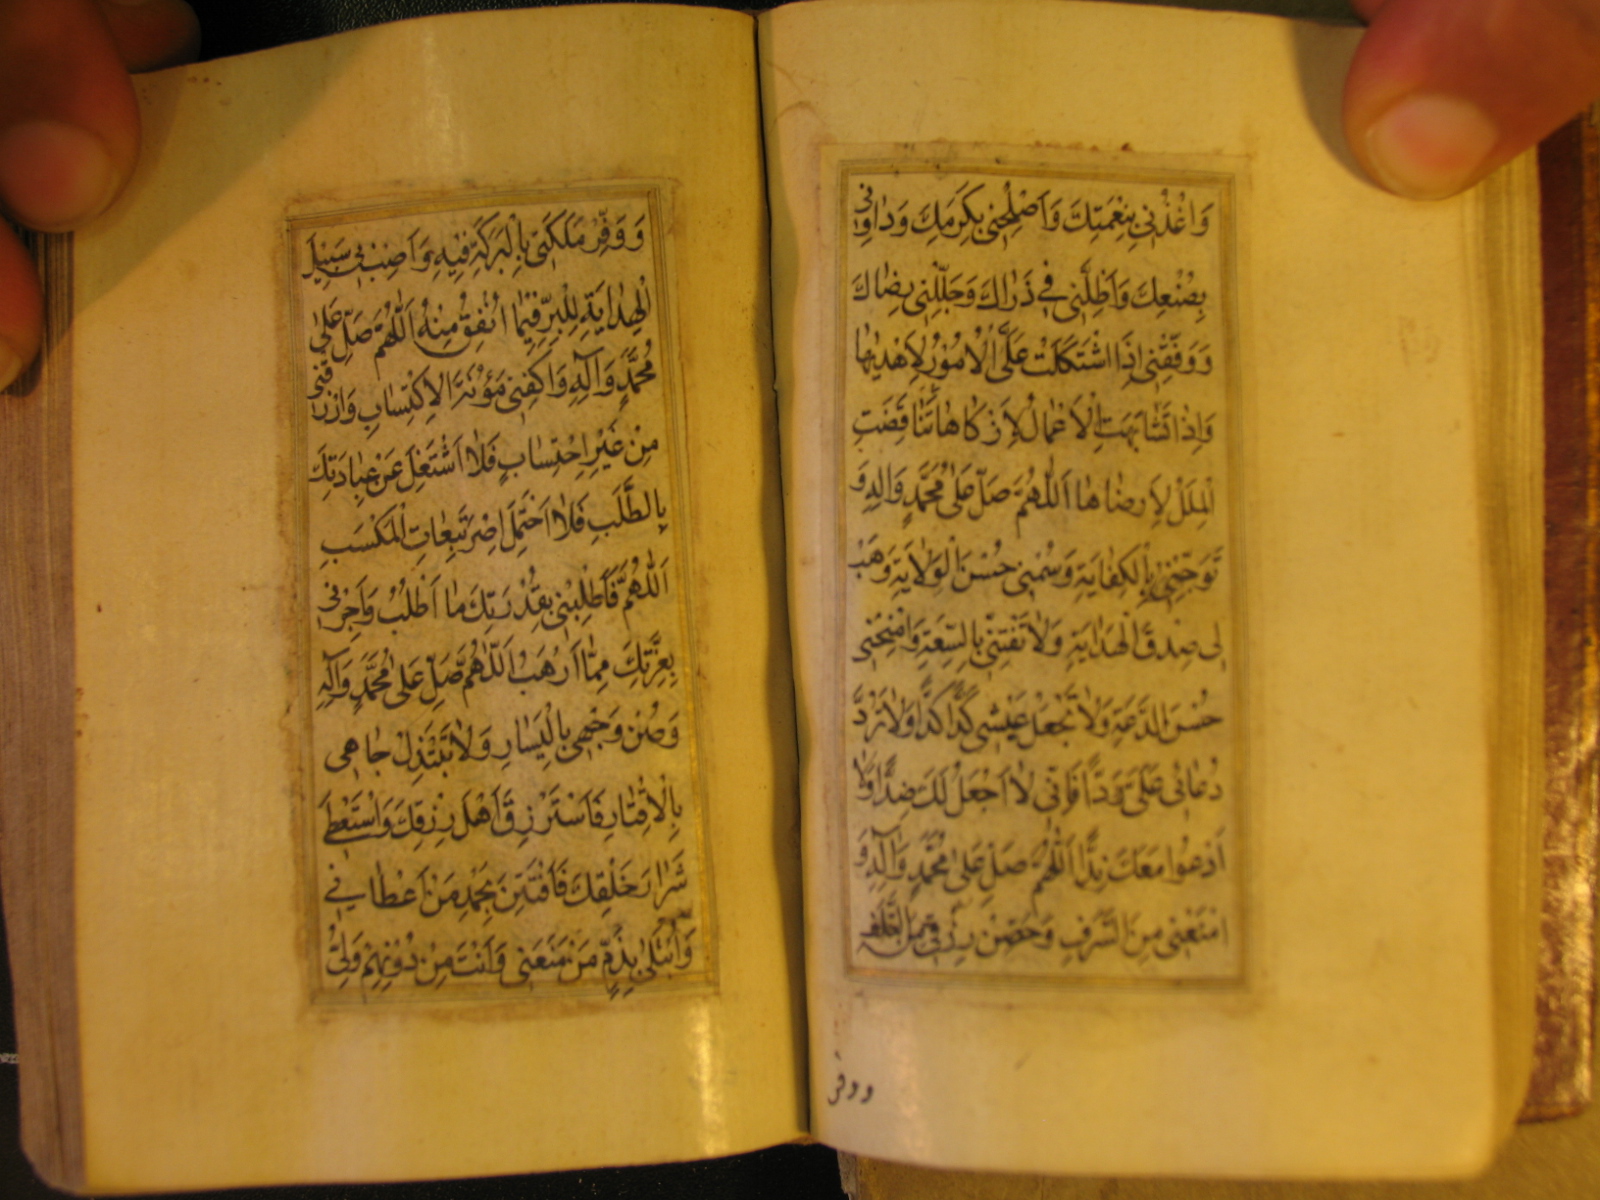 وَاغْذُنِي بِنِعْمَتِكَ وَاَصْلِحْنِي بِكَرَمِكَ وَدَاوِنِي
بِصُنْعِكَ وَاَظِلَّنِي فِي ذَرَاكَ وَجَلِّلْنِي رِضَاكَ
وَوَفِّقْنِي اِذَا اشْتَكَلَتْ عَلَيَّ الْاُمُورُ لِاَهْدٰيهَا
وَاِذَا تَشَابَهَتِ الْاَعْمَالُ لِاَزْكَاهَا وَاِذَا تَنَاقَضَتِ
الْمِلَلُ لِاَرْضَاهَا اَللّٰهُمَّ صَلِّ عَلٰى مُحَمَّدٍ وَاٰلِهِ وَ
تَوِّجْنِي بِالْكِفَايَةِ وَسُمْنِي حُسْنَ الْوَلَايَةِ وَهَبْ
لِي صِدْقَ الْهِدَايَةِ وَلَا تَفْتِنِّي بِالسَّعَةِ وَامْنَحْنِي
حُسْنَ الدَّعَةِ وَلَا تَجْعَلْ عَيْشِي كَدًّا كَدًّا وَلَا تَرُدَّ
دُعَائِي عَلَيَّ رَدًّا فَاِنِّي لَا اَجْعَلُ لَكَ ضِدًّا وَلَا
اَدْعُوا مَعَكَ نِدًّا اَللّٰهُمَّ صَلِّ عَلٰى مُحَمَّدٍ وَاٰلِهِ وَ
امْنَعْنِي مِنَ السَّرَفِ وَحَصِّنْ رِزْقِي مِنَ التَّلَفِ
ووفر
وَوَفِّرْ مَلَكَتِي بِالْبَرَكَةِ فِيهِ وَاَصِبْ بِي سَبِيلَ
الْهِدَايَةِ لِلْبِرِّ فِيمَا اُنْفِقُ مِنْهُ اَللّٰهُمَّ صَلِّ عَلٰى
مُحَمَّدٍ وَاٰلِهِ وَاكْفِنِي مَؤُنَةَ الْاِكْتِسَابِ وَارْزُقْنِي
مِنْ غَيْرِ احْتِسَابٍ فَلَا اَشْتَغِلَ عَنْ عِبَادَتِكَ
بِالطَّلَبِ فَلَا اَحْتَمِلَ اِصْرَ تَبِعَاتِ الْمَكْسَبِ
اَللّٰهُمَّ فَاَطْلِبْنِي بِقُدْرَتِكَ مَا اَطْلُبُ وَاَجِرْنِي
بِعِزَّتِكَ مِمَّا اَرْهَبُ اَللّٰهُمَّ صَلِّ عَلٰى مُحَمَّدٍ وَاٰلِهِ
وَصُنْ وَجْهِي بِالْيَسَارِ وَلَا تَبْتَذِلْ جَاهِي
بِالْاِقْتَارِ فَاَسْتَرْزِقَ اَهْلَ رِزْقِكَ وَاَسْتَعْطِيَ
شَرَارَ خَلْقِكَ فَاَفْتَتِنَ بِحَمْدِ مَنْ اَعْطَانِي
وَاُبْتَلٰى بِذَمِّ مَنْ مَنَعَنِي وَاَنْتَ مِنْ دُونِهِمْ وَلِيُّ